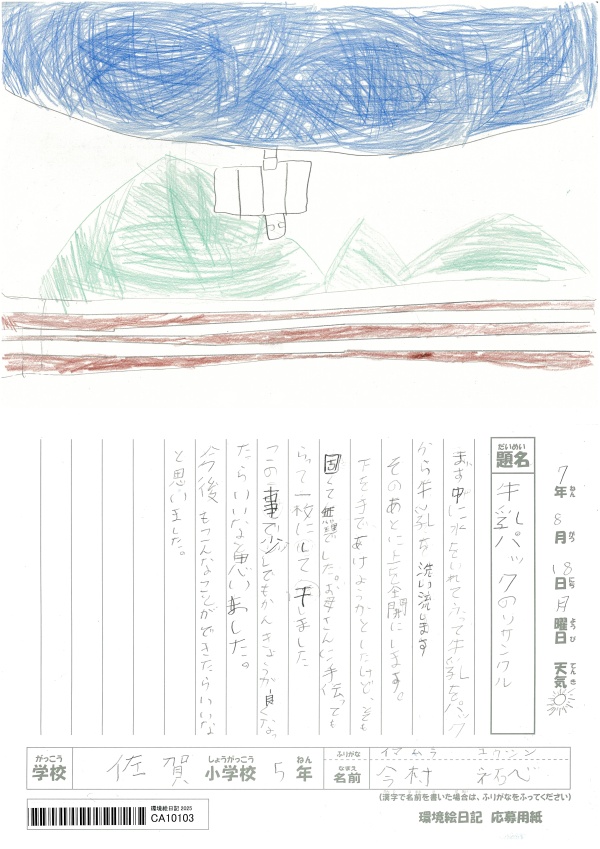 7年 8月 18日 月曜日 天気
ねん がつ にち ようび てんき
だいめい
題名 牛乳パックのリサイクル
まず中に水をいれてふって牛乳をパック
から牛乳を洗い流します
そのあとに上を全開にします。
下を手であけようかとしたけど、とても
固くて無理でした。お母さんに手伝っても
らって一枚にして干しました。
この事で少しでもかんきょうが良くなっ
たらいいなと思いました。
今後もこんなことができたらいいな
と思いました。
がっこう しょうがっこう ねん
学校 佐賀 小学校 5年
ふりがな イマムラ
なまえ
名前 今村
(漢字で名前を書いた場合は、ふりがなをふってください)
環境絵日記 応募用紙
環境絵日記 2025
CA10103